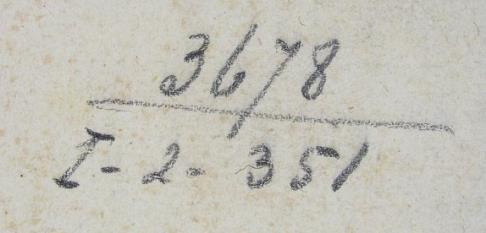 3678
I-2-351